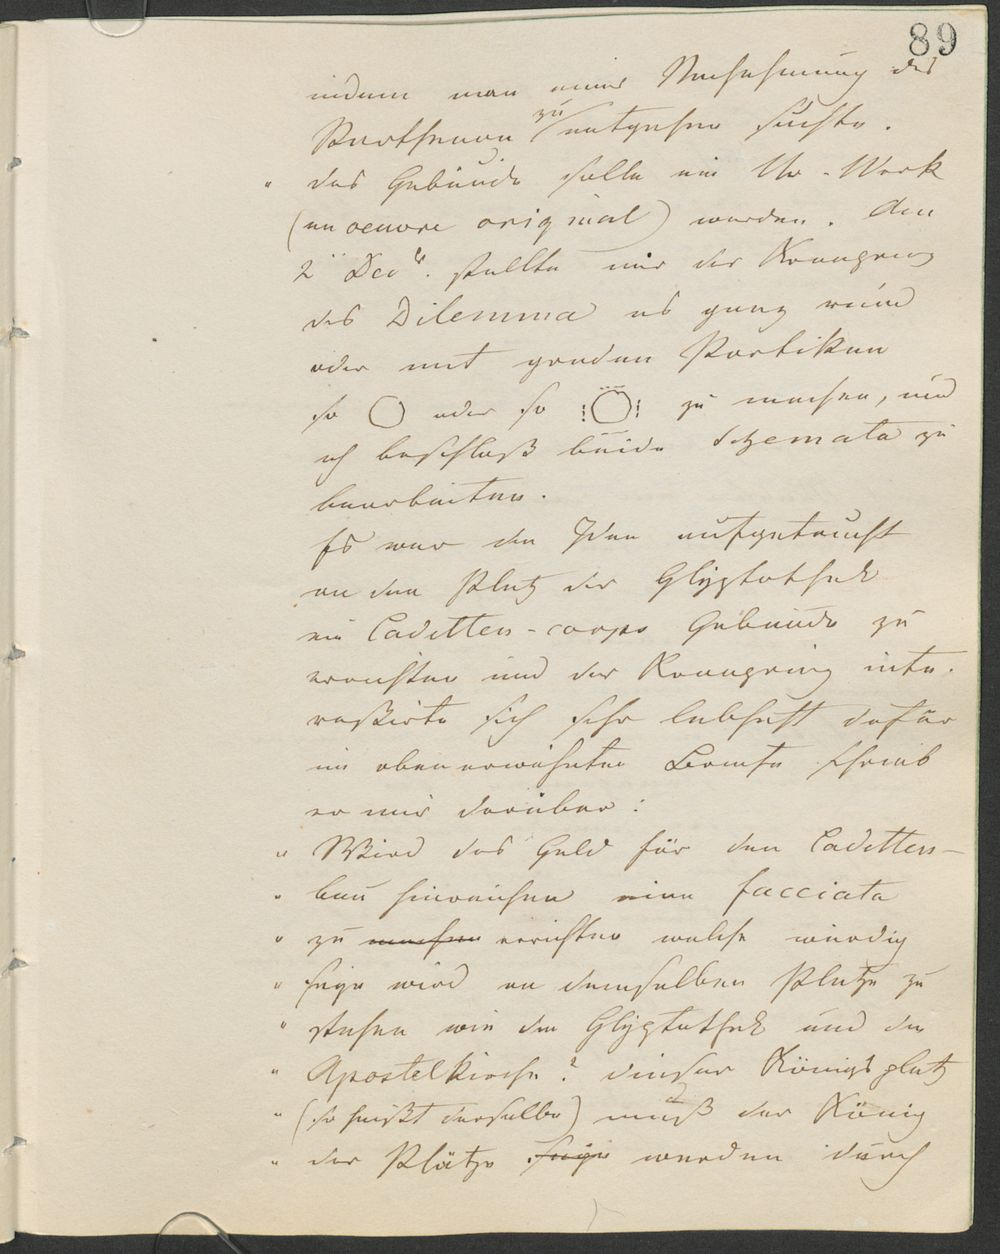 89
indem man einer Nachahmung des
Parthenon zu entgehen suchte.
" das Gebäude solle ein Ur-Werk
(un oeuvre original) werden. Am
2" Dec br. stellte mir der Kronprinz
das Dilemma es ganz rund
oder mit geraden Portiken
so oder so zu machen, und
ich beschloß beide Schemata zu
bearbeiten.
Es war die Idee aufgetaucht
an den Platz der Glÿptothek
ein Cadetten-corps Gebäude zu
errichten und der Kronprinz inte-
reßirte sich sehr lebhaft dafür
im obenerwähnten Briefe schrieb
er mir darüber:
" Wird das Geld für den Cadetten-
" bau hinreichen eine facciata
" zu machen errichten welche würdig
" seÿn wird an demselben Platze zu
" stehen wie die Glÿptothek und die
" Apostelkirche? dieser Königsplatz
" (so heißt derselbe) muß der König
" der Plätze seÿn werden durch